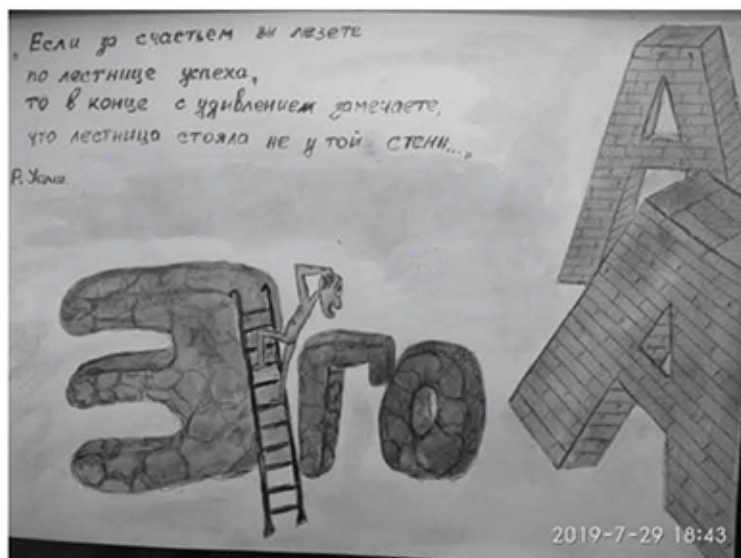 „Если за счастьем вы лезете
по лестнице успеха,
то в конце с удивлением замечаете,
что лестница стояла не у той стены...„
Р. Уолш.
Эго
А
А
2019-7-29 18:43